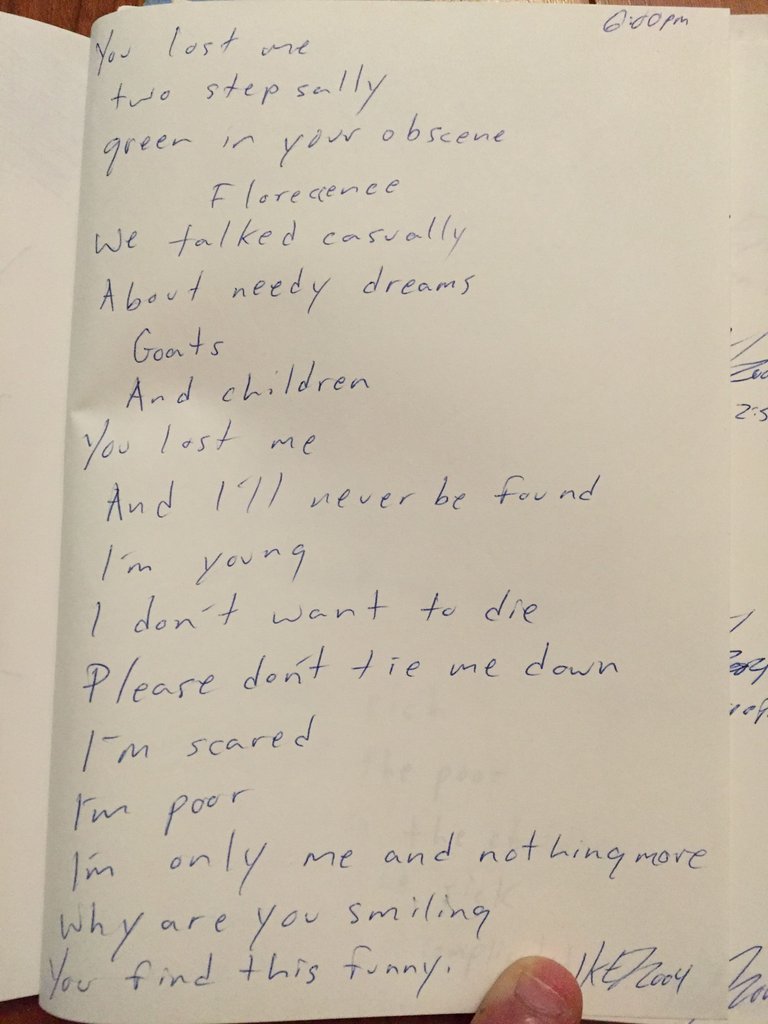 6:00pm
You lost me
two step sally
green in your obscene
Florecence
We talked casually
About needy dreams
Goats
And children
You lost me
And I'll never be found
I'm young
I don't want to die
Please don't tie me down
I'm scared
I'm poor
I'm only me and nothing more
Why are you smiling
You find this funny.
2004